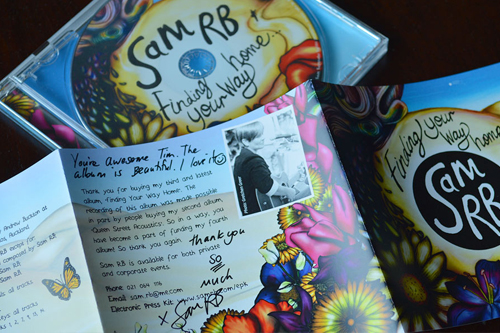 Sam RB
Finding
your
Way
home.
You're awesome Tim. The
album is beautiful. I love it
Thank you for buying my third and latest
album, Finding Your Way Home. The
recording of this album was made possible
in part by people buying my second album,
Queen Street Acoustics. So in a way, you
have become a part of funding my fourth
album. So thank you again.
thank you
so
much
Sam RB is available for both private
and corporate events.
Phone 021 064 116
Email sam.rb@me.com
Electronic Press Kit
x Sam RB
Auckland
composed by Sam RB
Sam RB
all tracks
all tracks
Finding your
Way
home
Sam
RB